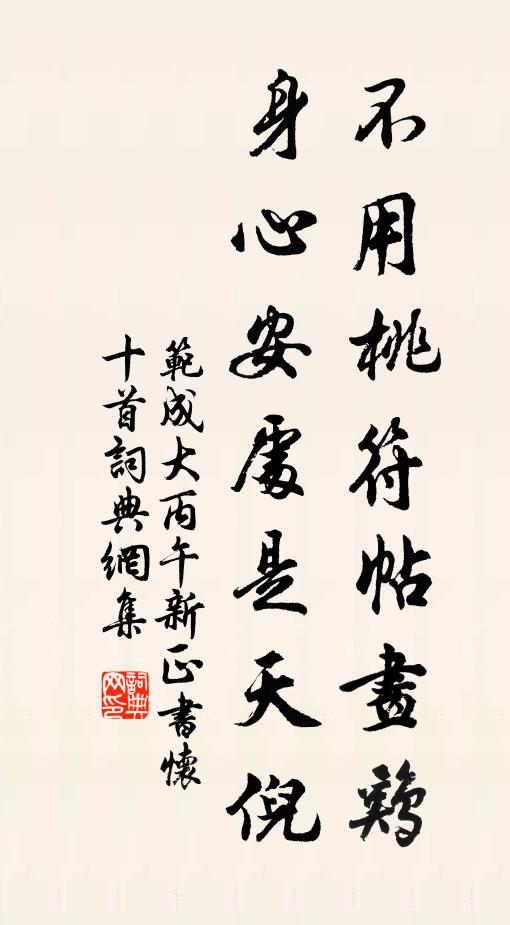 不用桃符帖畫鷄
身心安處是天倪
範成大丙午新正書懷
十首詞典網集
詞典
网印